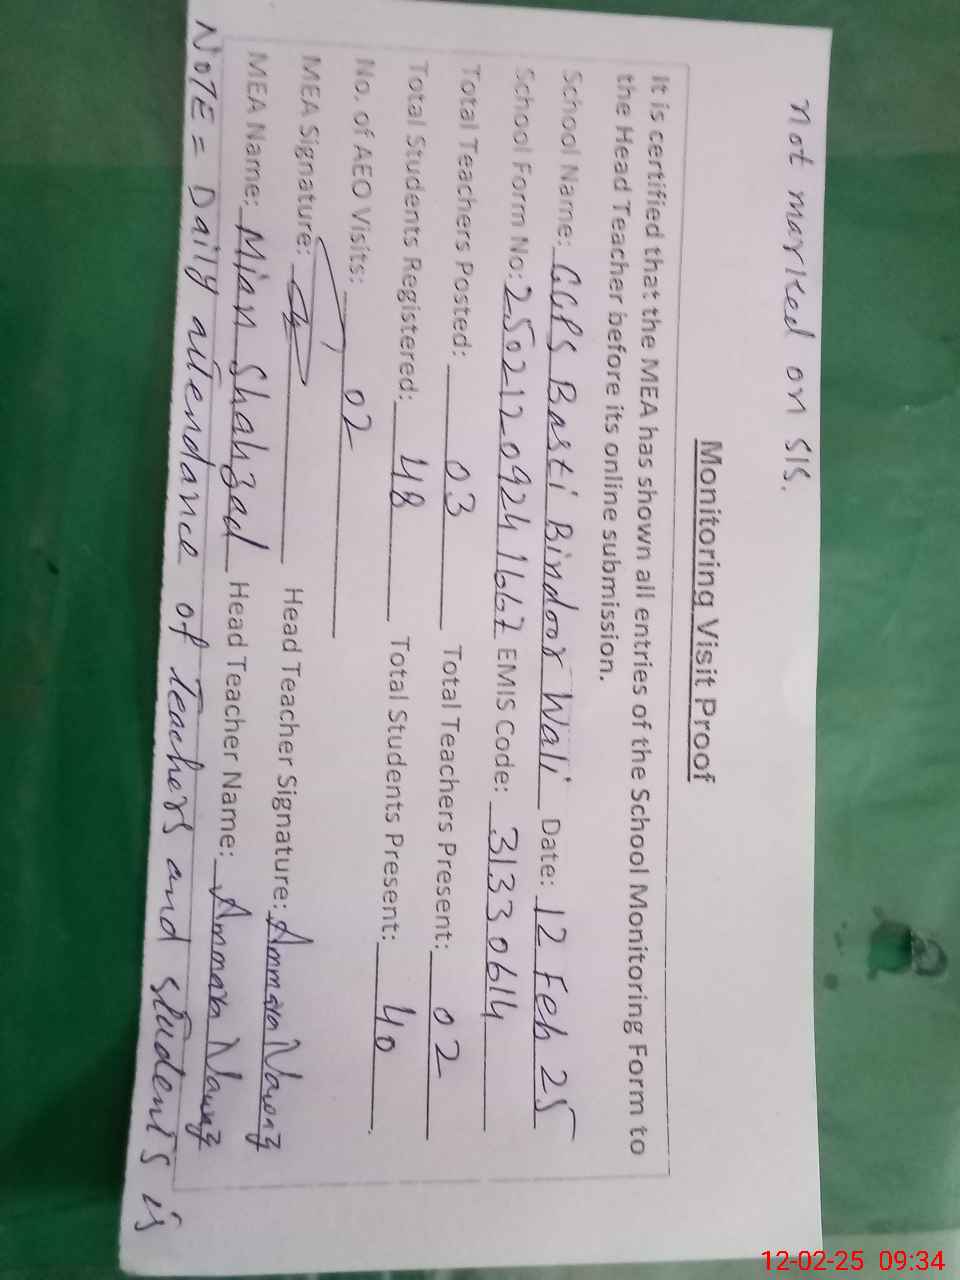 not marked on SIS.
Monitoring Visit Proof
It is certified that the MEA has shown all entries of the School Monitoring Form to
the Head Teacher before its online submission.
School Name: GGPS Basti Bindor Wali Date: 12 Feb 25
School Form No: 2502120924 1667 EMIS Code: 31330614
Total Teachers Posted: 03 Total Teachers Present: 02
Total Students Registered: 48 Total Students Present: 40.
No. of AEO Visits: 02
MEA Signature: Head Teacher Signature: Ammara Nawaz
MEA Name: Mian Shahzad Head Teacher Name: Ammara Nawaz
NOTE = Daily attendance of teachers and student's is
12-02-25 09:34